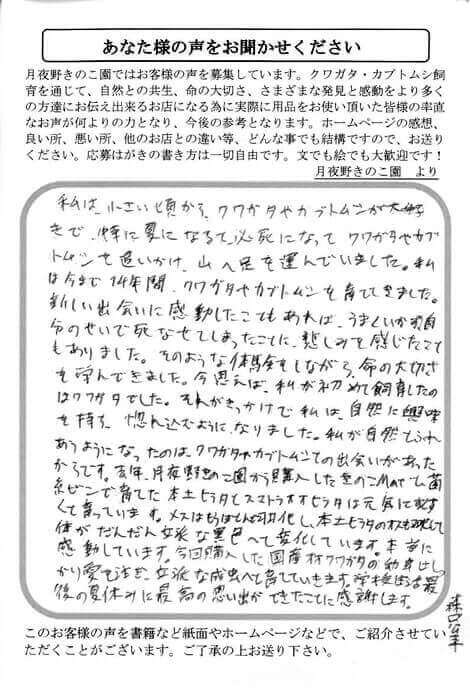 あなた様の声をお聞かせください
月夜野きのこ園ではお客様の声を募集しています。クワガタ・カブトムシ飼
育を通じて、自然との共生、命の大切さ、さまざまな発見と感動をより多く
の方達にお伝え出来るお店になる為に実際に用品をお使い頂いた皆様の率直
なお声が何よりの力となり、今後の参考となります。ホームページの感想、
良い所、悪い所、他のお店との違い等、どんな事でも結構ですので、お送り
ください。応募はがきの書き方は一切自由です。文でも絵でも大歓迎です！
月夜野きのこ園　より
私は、小さい頃から、クワガタやカブトムシが大好
きで、特に夏になると、必死になって クワガタやカブ
トムシを追いかけ、山へ足を運んでいました。私
は今まで14年間、クワガタやカブトムシを育ててきました。
新しい出会いに感動したこともあれば、うまくいかず自
分のせいで死なせてしまったことに、悲しみを感じたこと
もありました。そのような体験をしながら、命の大切さ
を学んできました。今思えば、私が初めて飼育したの
はクワガタでした。それがきっかけで私は、自然に興味
を持ち、惚れ込むようになりました。私が自然とふれ
あうようになったのは、クワガタやカブトムシとの出会いがあった
からです。去年、月夜野きのこ園から購入したきのこMatと菌
糸ビンで育てた本土ヒラタとスマトラオオヒラタは元気に
育っています。メスは 羽化し、本土ヒラタのオスも
体がだんだん立派な黒色へと変化しています。本当に
感動しています。今回購入した国産材クワガタの幼虫もしっ
かり愛を注ぎ、立派な成虫へと育てていきます。学校生活最
後の夏休みに最高の思い出ができたことに感謝します。
このお客様の声を書籍など紙面やホームページなどで、ご紹介させてい
ただくことがございます。ご了承の上お送り下さい。